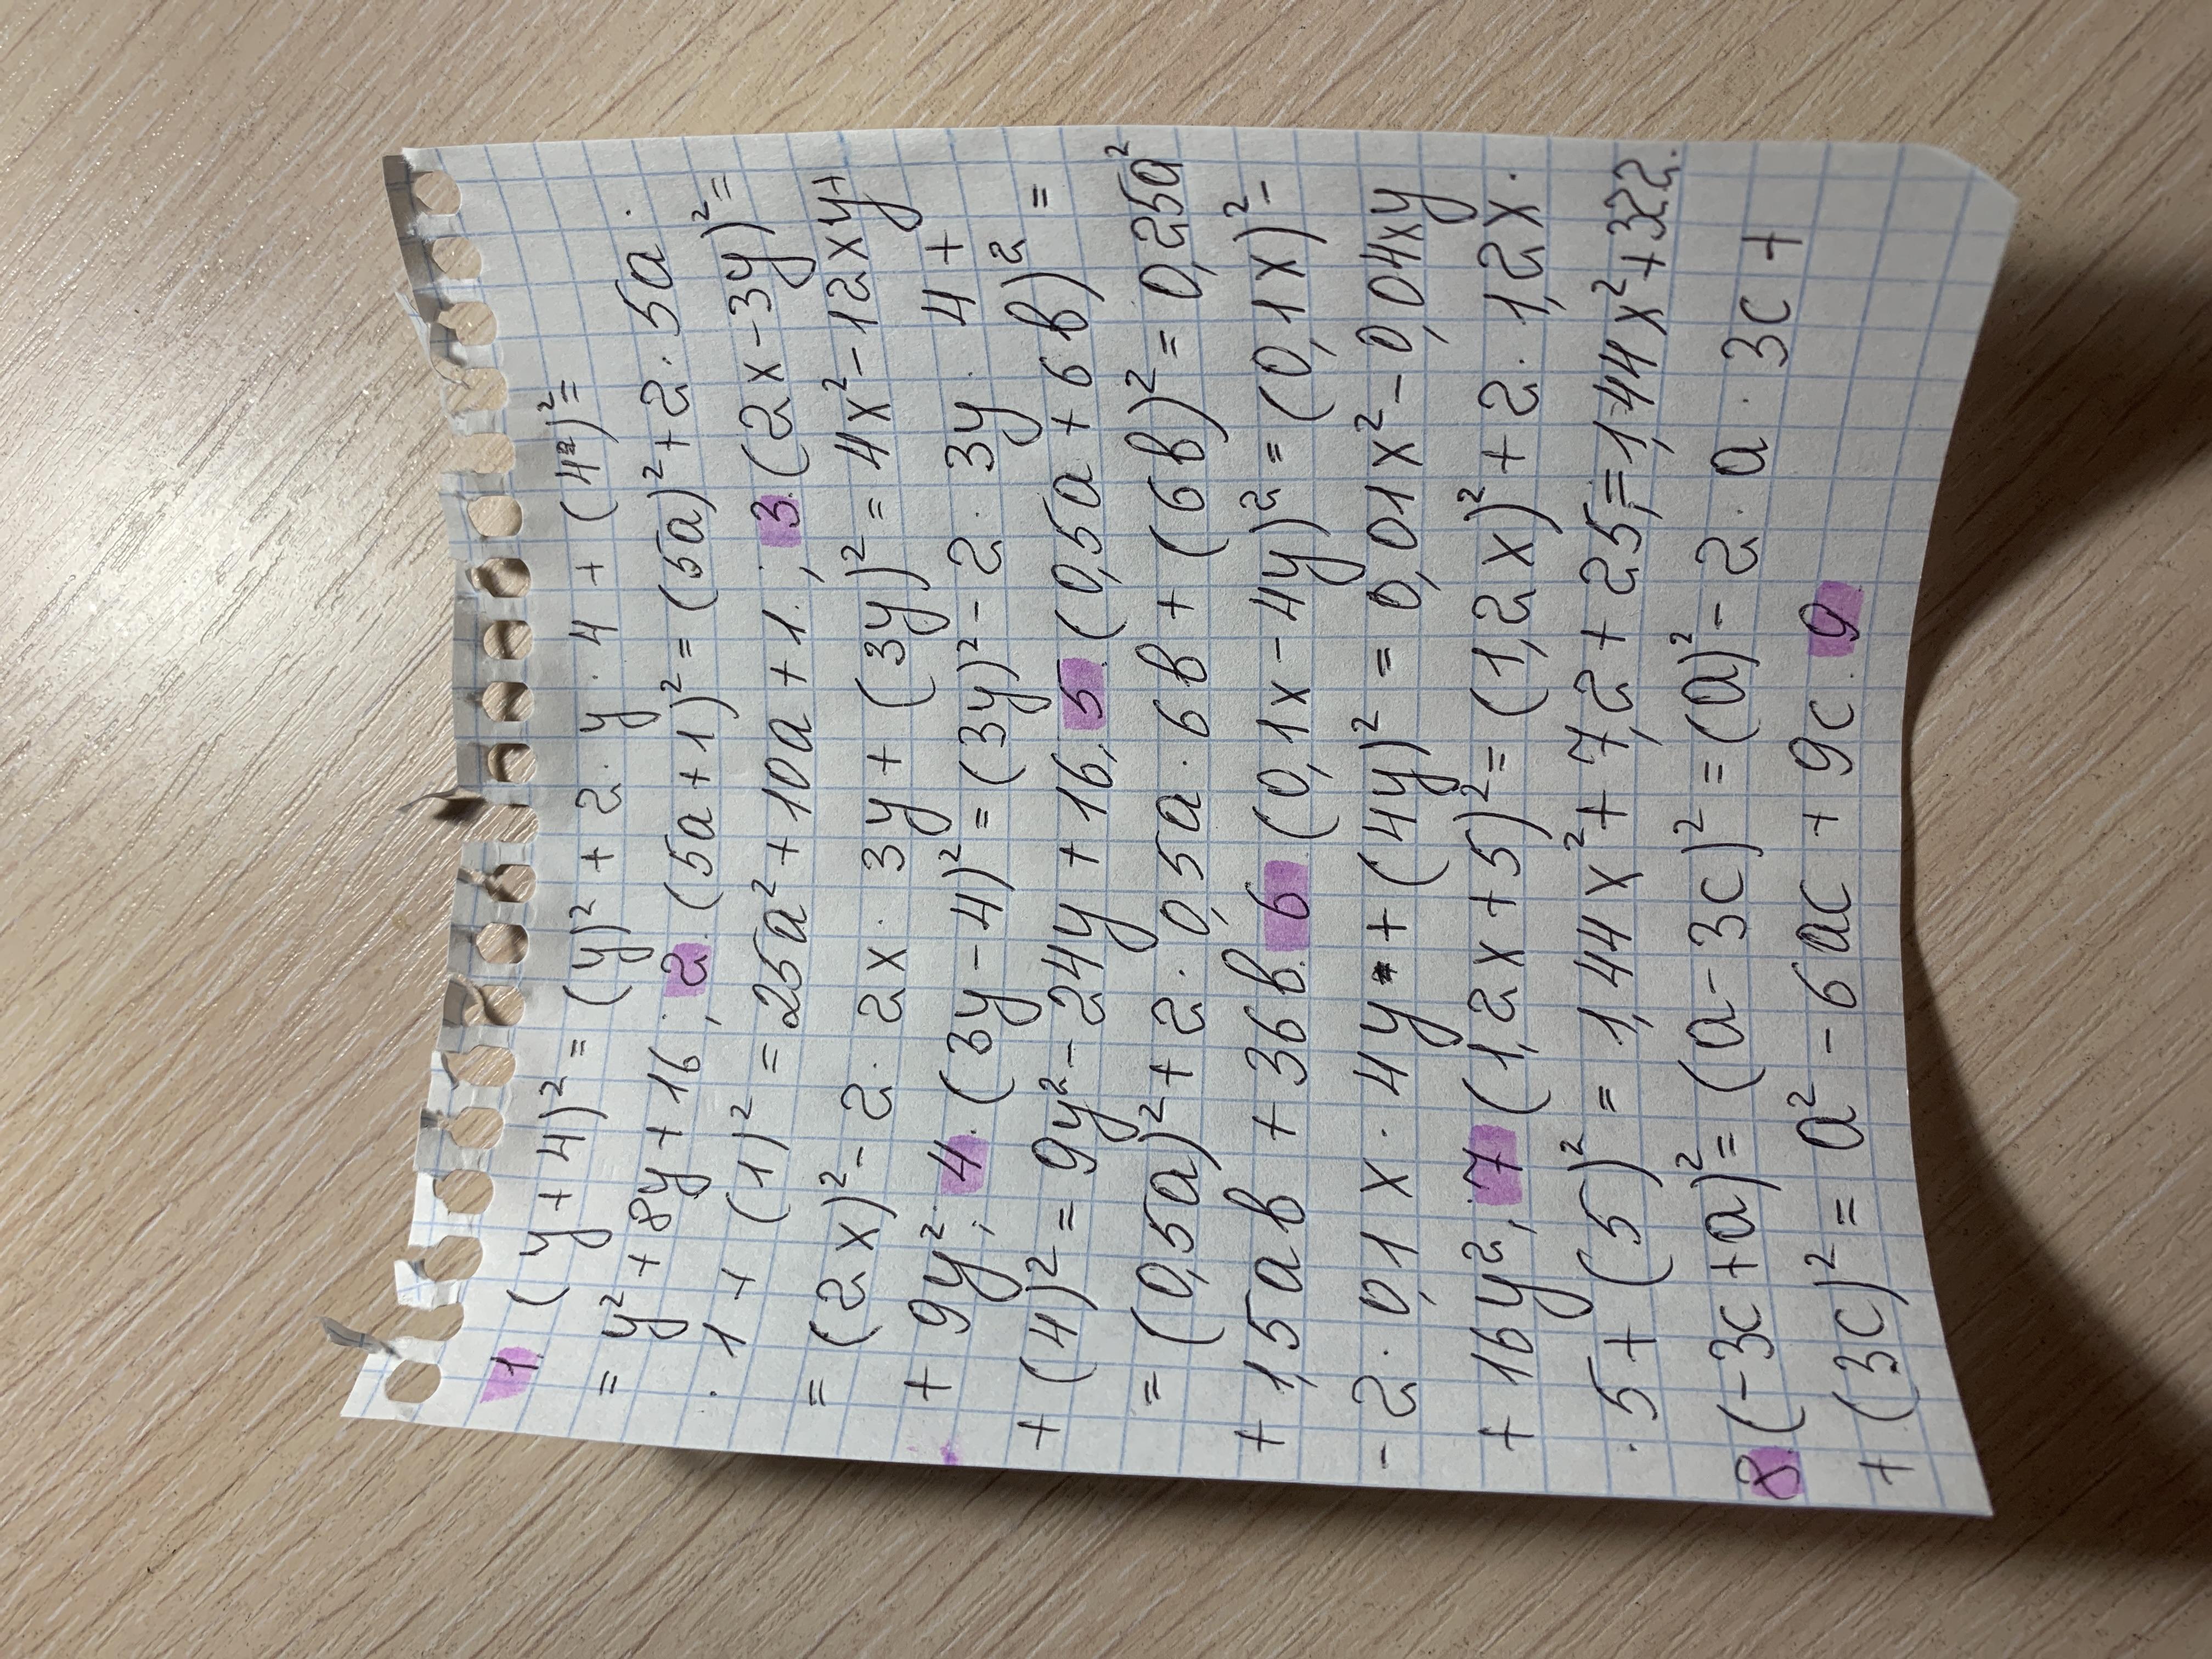 1. (y + 4)² = (y)² + 2 · y · 4 + (4)² =
= y² + 8y + 16 ; 2. (5a + 1)² = (5a)² + 2 · 5a ·
· 1 + (1)² = 25a² + 10a + 1 ; 3. (2x - 3y)² =
= (2x)² - 2 · 2x · 3y + (3y)² = 4x² - 12xy +
+ 9y² ; 4. (3y - 4)² = (3y)² - 2 · 3y · 4 +
+ (4)² = 9y² - 24y + 16, 5. (0,5a + 6b)² =
= (0,5a)² + 2 · 0,5a · 6b + (6b)² = 0,25a²
+ 1,5ab + 36b. 6 (0,1x - 4y)² = (0,1x)² -
- 2 · 0,1x · 4y + (4y)² = 0,01x² - 0,04xy
+ 16y², 7 (1,2x + 5)² = (1,2x)² + 2 · 1,2x ·
· 5 + (5)² = 1,44x² + 7,2 + 25, = 1,44x² + 32,2.
8. (-3c + a)² = (a - 3c)² = (a)² - 2 · a · 3c +
+ (3c)² = a² - 6ac + 9c. 9